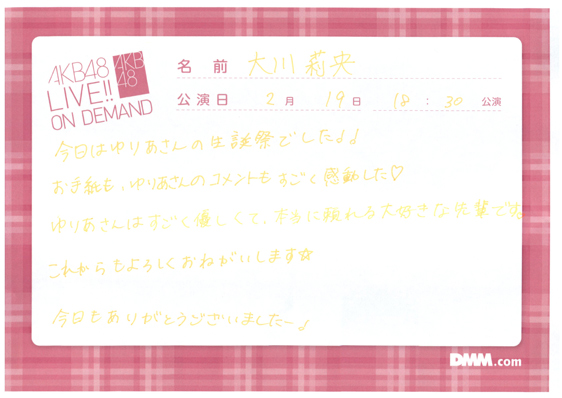 AKB48
LIVE!!
ON DEMAND
AKB
48
名 前 大川 莉央
公演日 2 月 19 日 18 : 30 公演
今日はゆりあさんの生誕祭でした♪♪
お手紙も、ゆりあさんのコメントもすごく感動した♡
ゆりあさんはすごく優しくて、本当に頼れる大好きな先輩です。
これからもよろしくおねがいします☆
今日もありがとうございました〜♪
DMM.com